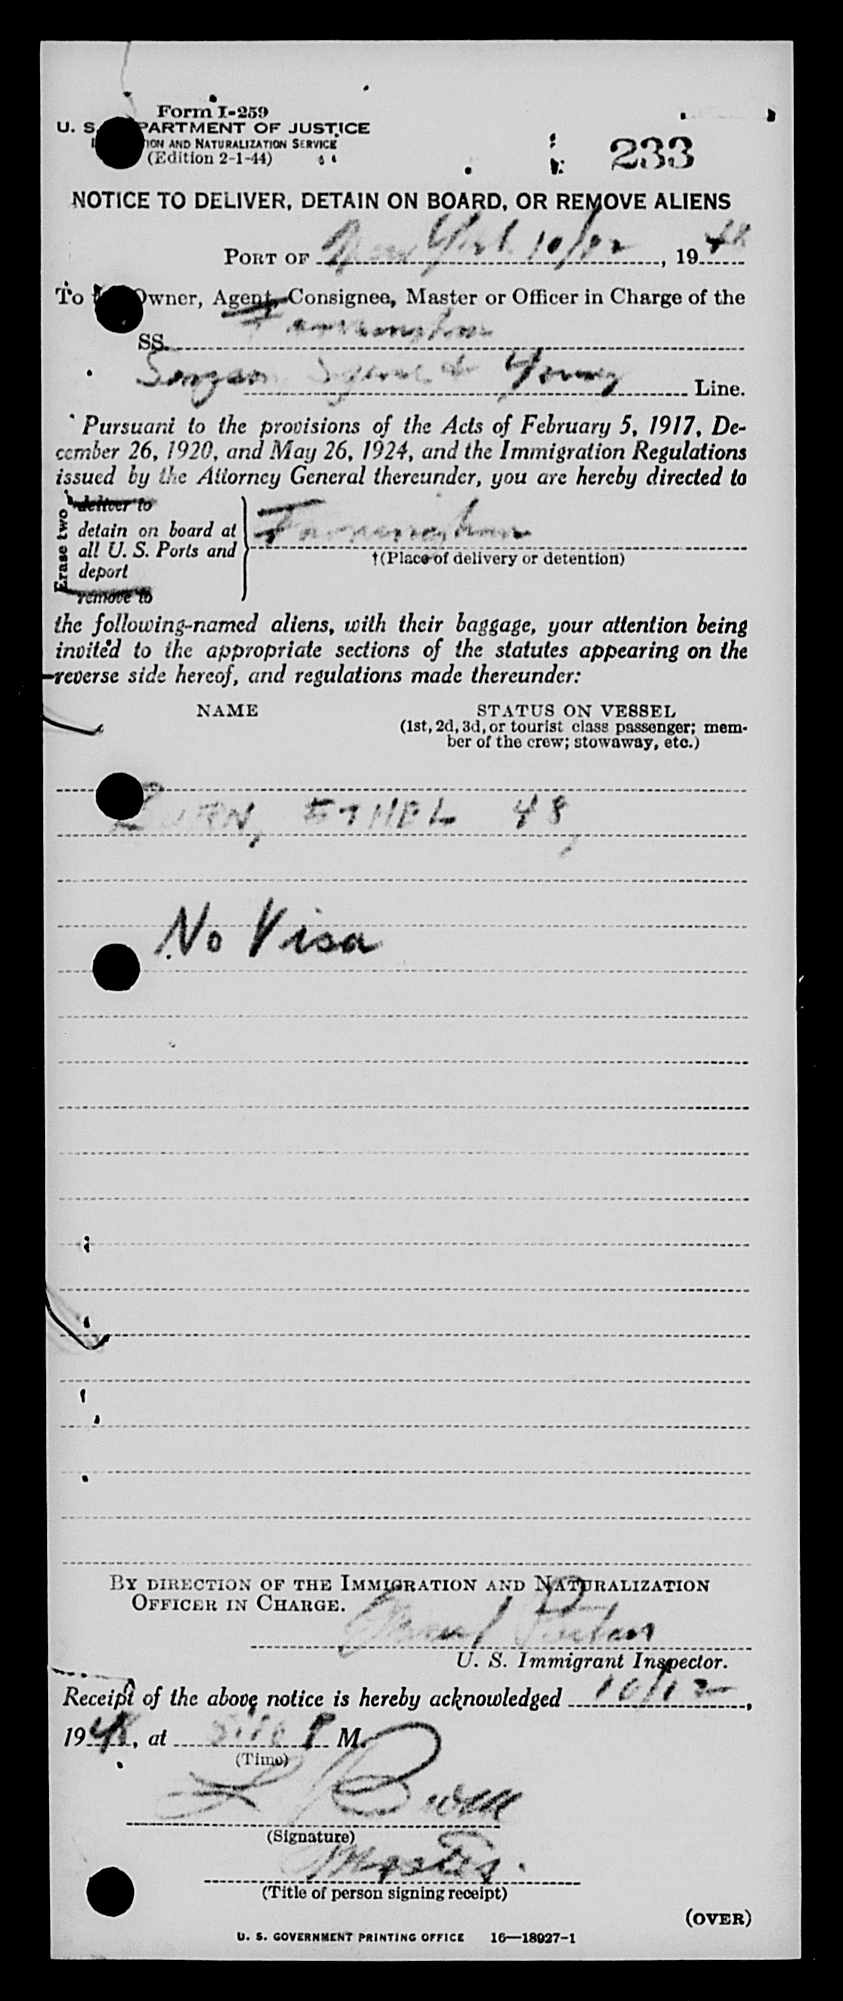 Form I-259
U. S. DEPARTMENT OF JUSTICE
IMMIGRATION AND NATURALIZATION SERVICE
(Edition 2-1-44)
233
NOTICE TO DELIVER, DETAIN ON BOARD, OR REMOVE ALIENS
PORT OF New York 10/12, 1948
To the Owner, Agent, Consignee, Master or Officer in Charge of the
SS. Farmington
Young Line.
Pursuant to the provisions of the Acts of February 5, 1917, De-
cember 26, 1920, and May 26, 1924, and the Immigration Regulations
issued by the Attorney General thereunder, you are hereby directed to
Erase two
deliver to
detain on board at
all U. S. Ports and
deport
remove to
Farmington
†(Place of delivery or detention)
the following-named aliens, with their baggage, your attention being
invited to the appropriate sections of the statutes appearing on the
reverse side hereof, and regulations made thereunder:
NAME
STATUS ON VESSEL
(1st, 2d, 3d, or tourist class passenger; mem-
ber of the crew; stowaway, etc.)
ETHEL 48
No Visa
BY DIRECTION OF THE IMMIGRATION AND NATURALIZATION
OFFICER IN CHARGE.
U. S. Immigrant Inspector.
Receipt of the above notice is hereby acknowledged 10/12,
1948, at P M.
(Time)
(Signature)
Master.
(Title of person signing receipt)
(OVER)
U. S. GOVERNMENT PRINTING OFFICE 16—18927-1